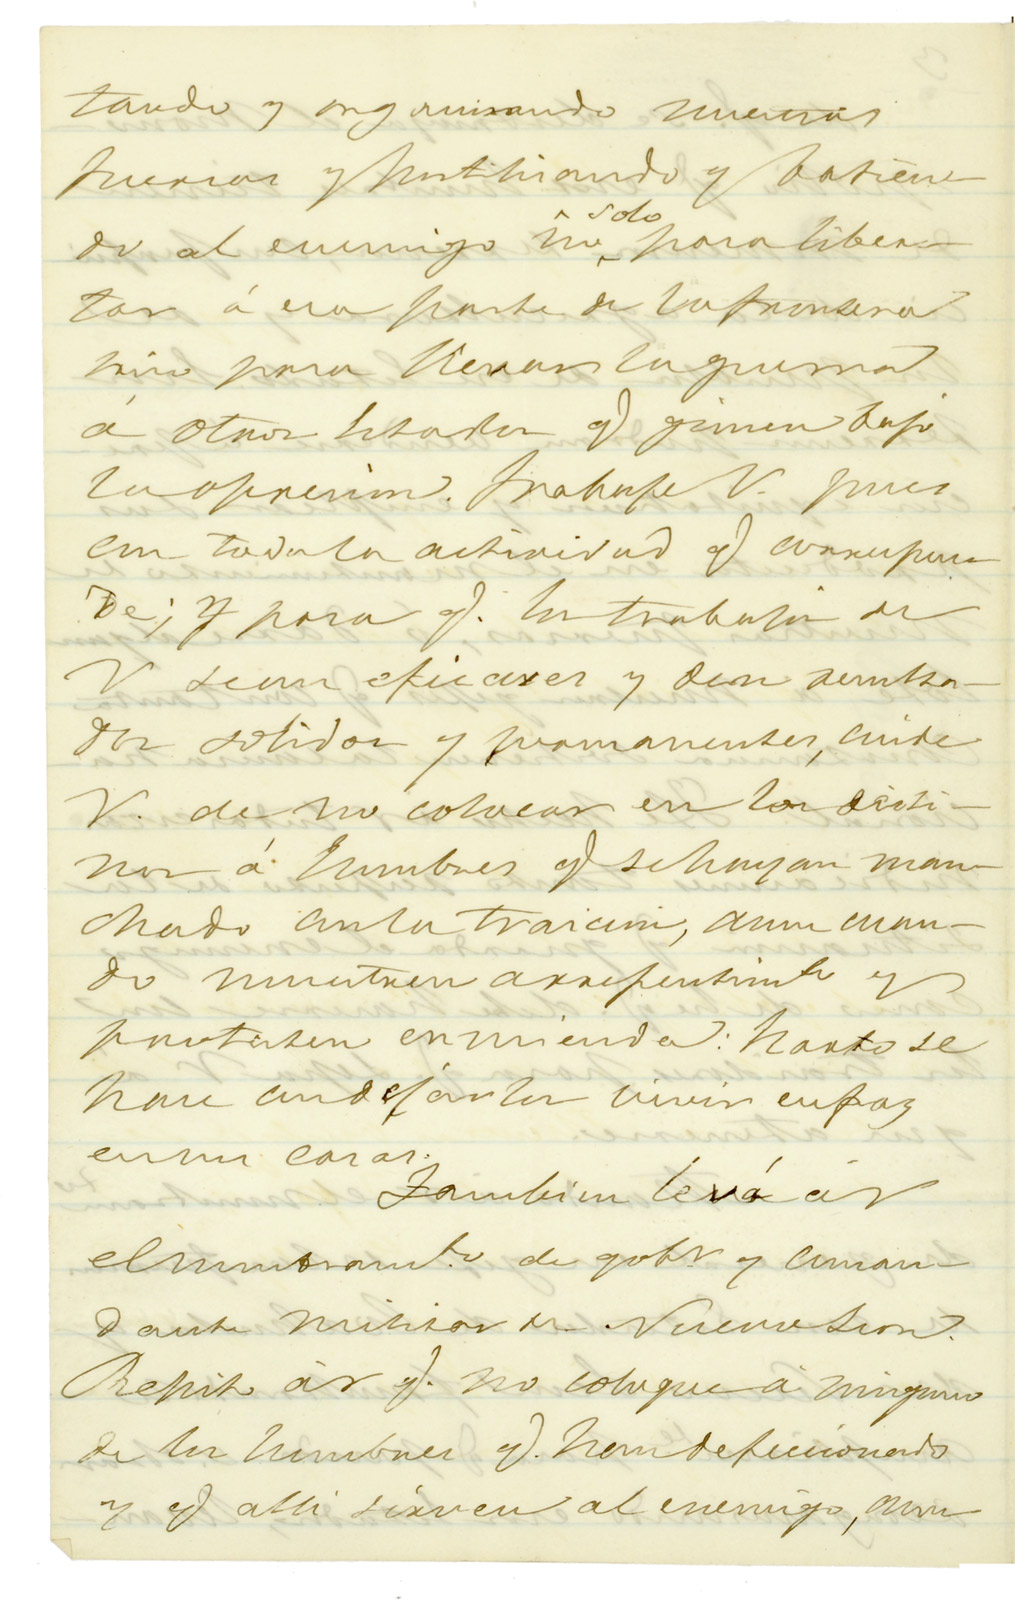 tando y organisando nuevas
fuerzas y hostilisando y batien-
do al enemigo no solo para liber-
tar á esa parte de la frontera
sino para llevar la guerra
á otros Estados q̃ gimen bajo
la opresion. Trabaje V. pues
con toda la actividad q̃ correspon-
de; y para q̃. los trabajos de
V sean eficaces y den resulta-
dos solidos y permanentes, cuide
V. de no colocar en los desti-
nos á hombres q̃ se hayan man-
chado con la traicion, aun cuan-
do muestren arrepentimto y
protesten enmienda: harto se
hace con dejarlos vivir en paz
en sus casas.
Tambien le vá á V
el nombramto. de gobr. y coman-
dante militar de Nuevo Leon.
Repito á V q̃. no coloque á ninguno
de los hombres q̃. han defeccionado
y q̃ alli sirven al enemigo, aun